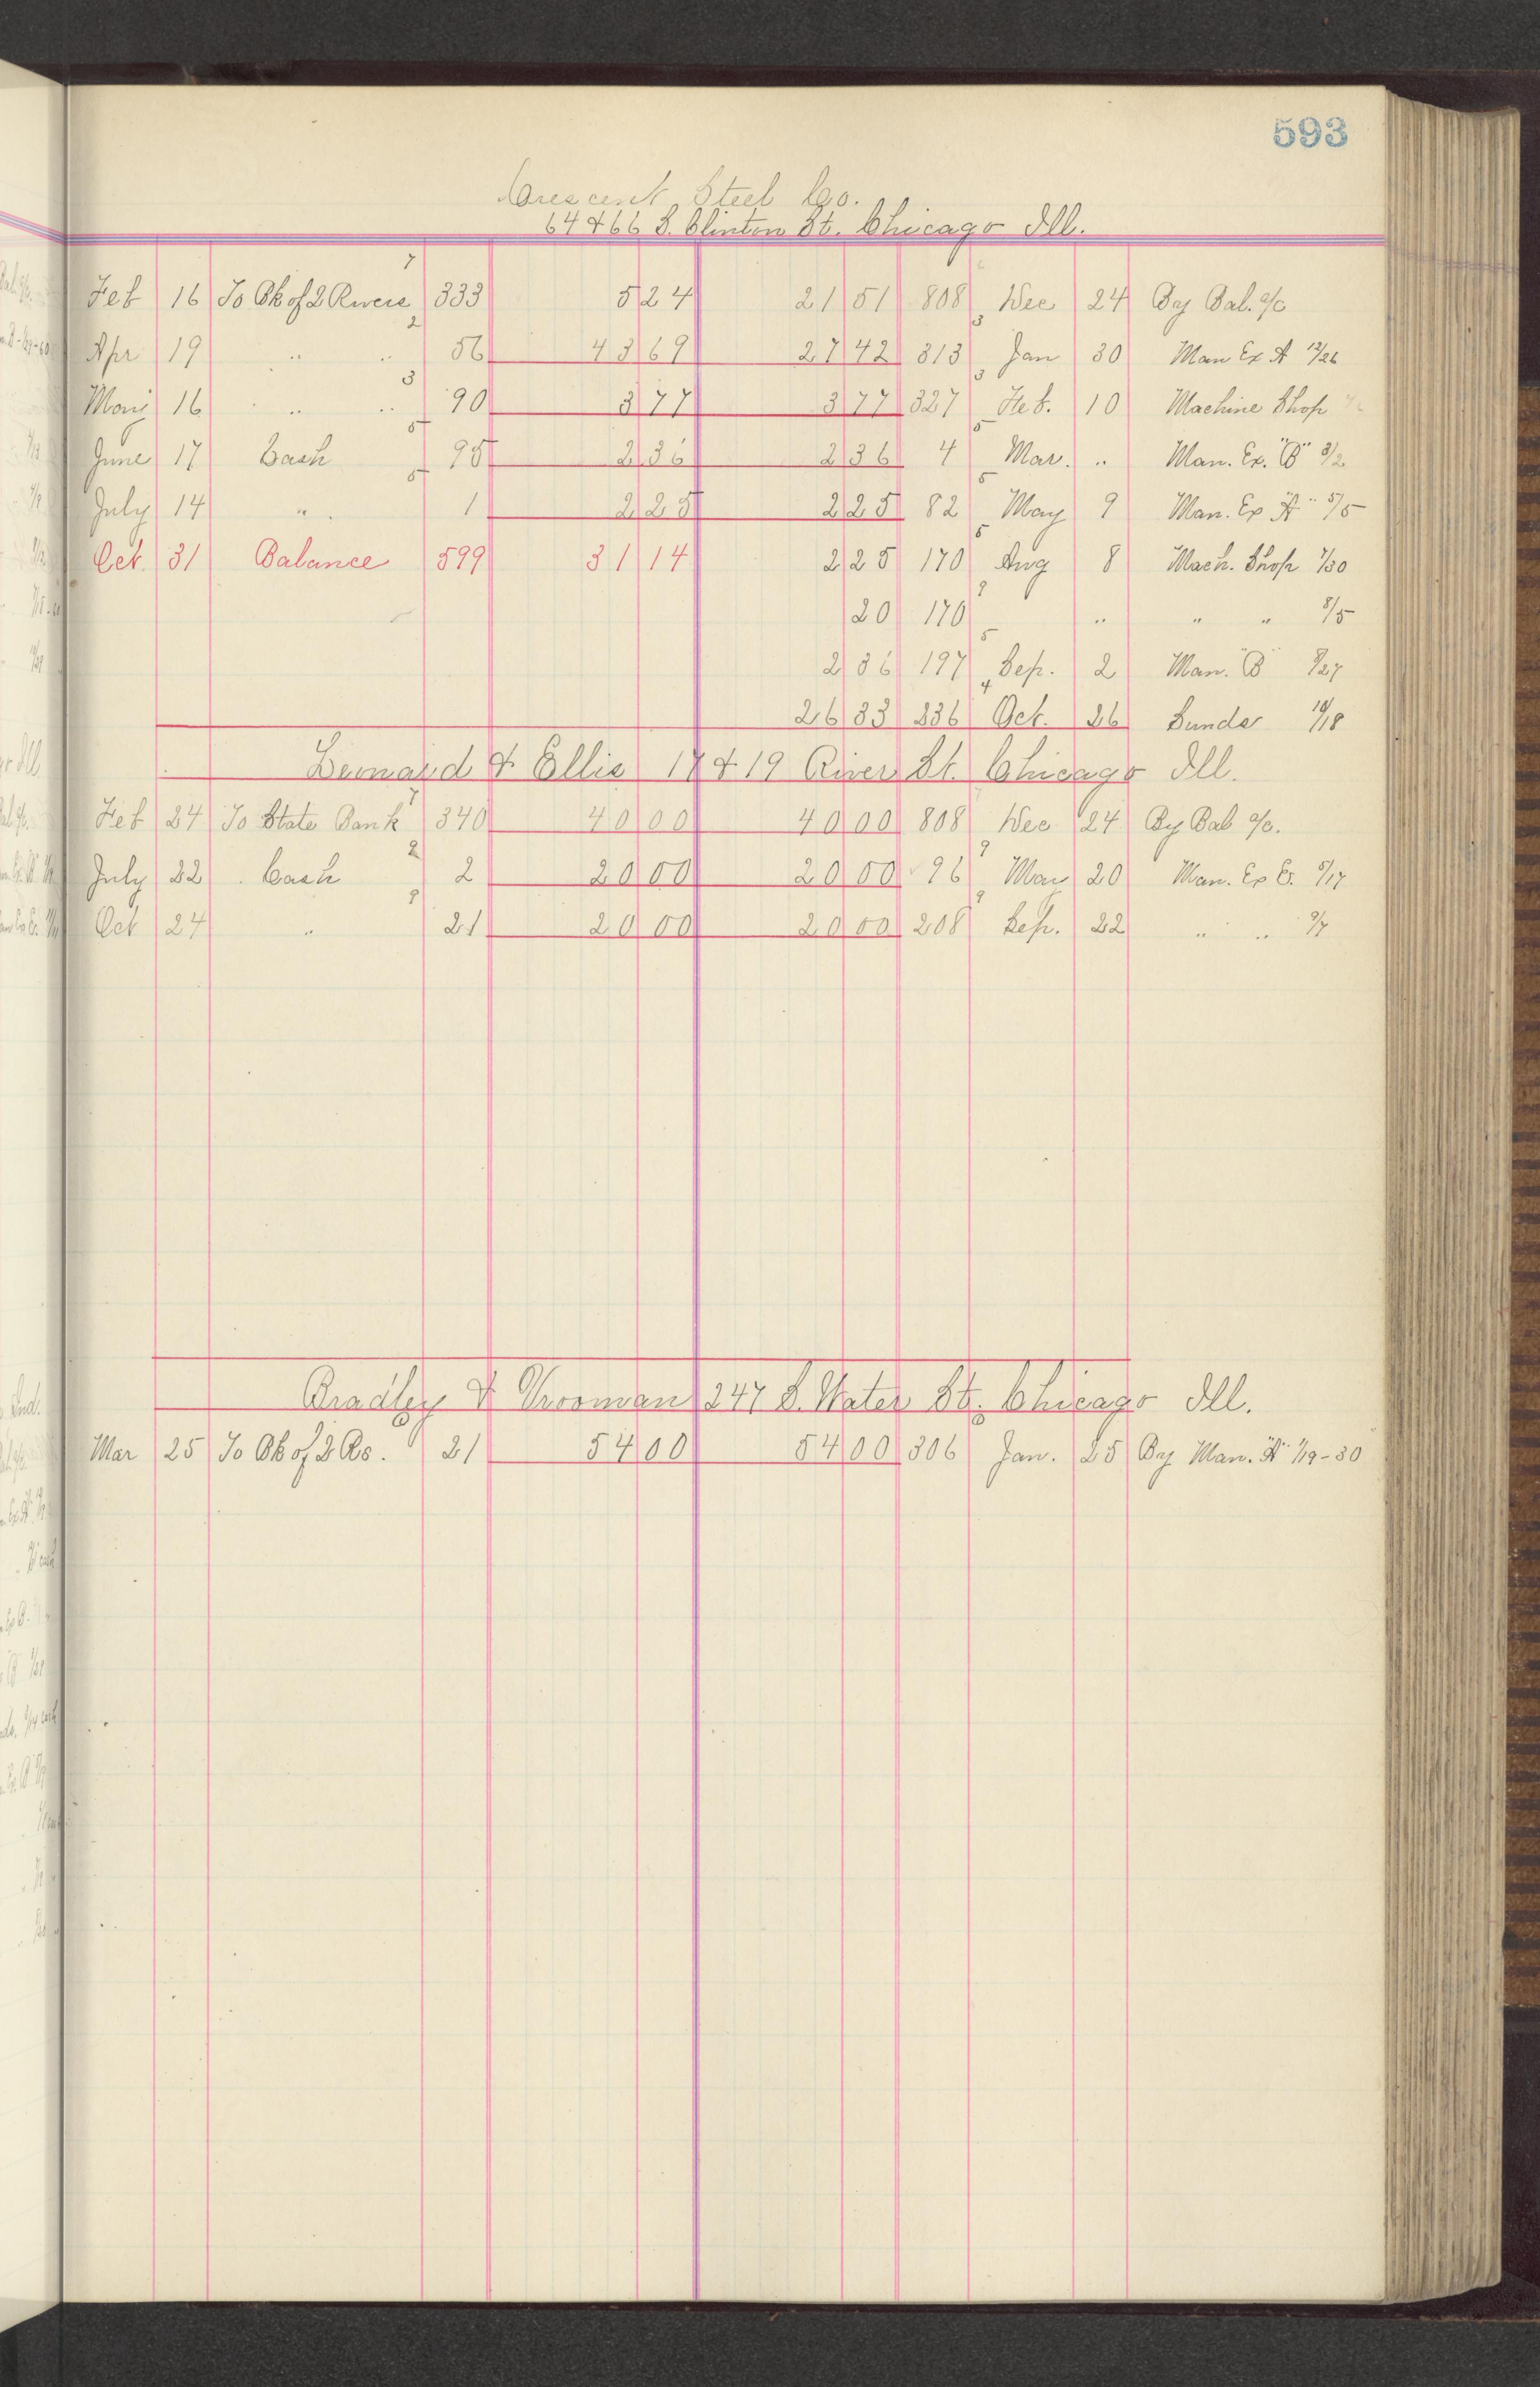 593
Crescent Steel Co.
64 & 66 S. Clinton St. Chicago Ill.
7
Feb 16 To Bk of 2 Rivers 333 5 24 21 51 808 Dec 24 By Bal. a/c
2 3
Apr 19 " " 56 43 69 27 42 313 Jan 30 Man Ex A 12/26
3 3
May 16 " " 90 3 77 3 77 327 Feb. 10 Machine Shop
5 5
June 17 Cash 95 2 36 2 36 4 Mar. " Man. Ex. "B" 3/2
5 5
July 14 " 1 2 25 2 25 82 May 9 Man. Ex "A" 5/5
5
Oct. 31 Balance 599 31 14 2 25 170 Aug 8 Mach. Shop 7/30
9
20 170 " " " 8/5
5
2 36 197 Sep. 2 Man. "B" 8/27
4
26 33 236 Oct. 26 Sunds 10/18
& Ellis 17 & 19 River St. Chicago Ill.
7
Feb 24 To State Bank 340 40 00 40 00 808 Dec 24 By Bal a/c.
2 9
July 22 Cash 2 20 00 20 00 96 May 20 Man. Ex E. 5/17
9 9
Oct 24 " 21 20 00 20 00 208 Sep. 22 " " 9/7
Bradley & Vrooman 247 S. Water St. Chicago Ill.
Mar 25 To Bk of 2 Rs. 21 54 00 54 00 306 Jan. 25 By Man. "A" 1/19-30